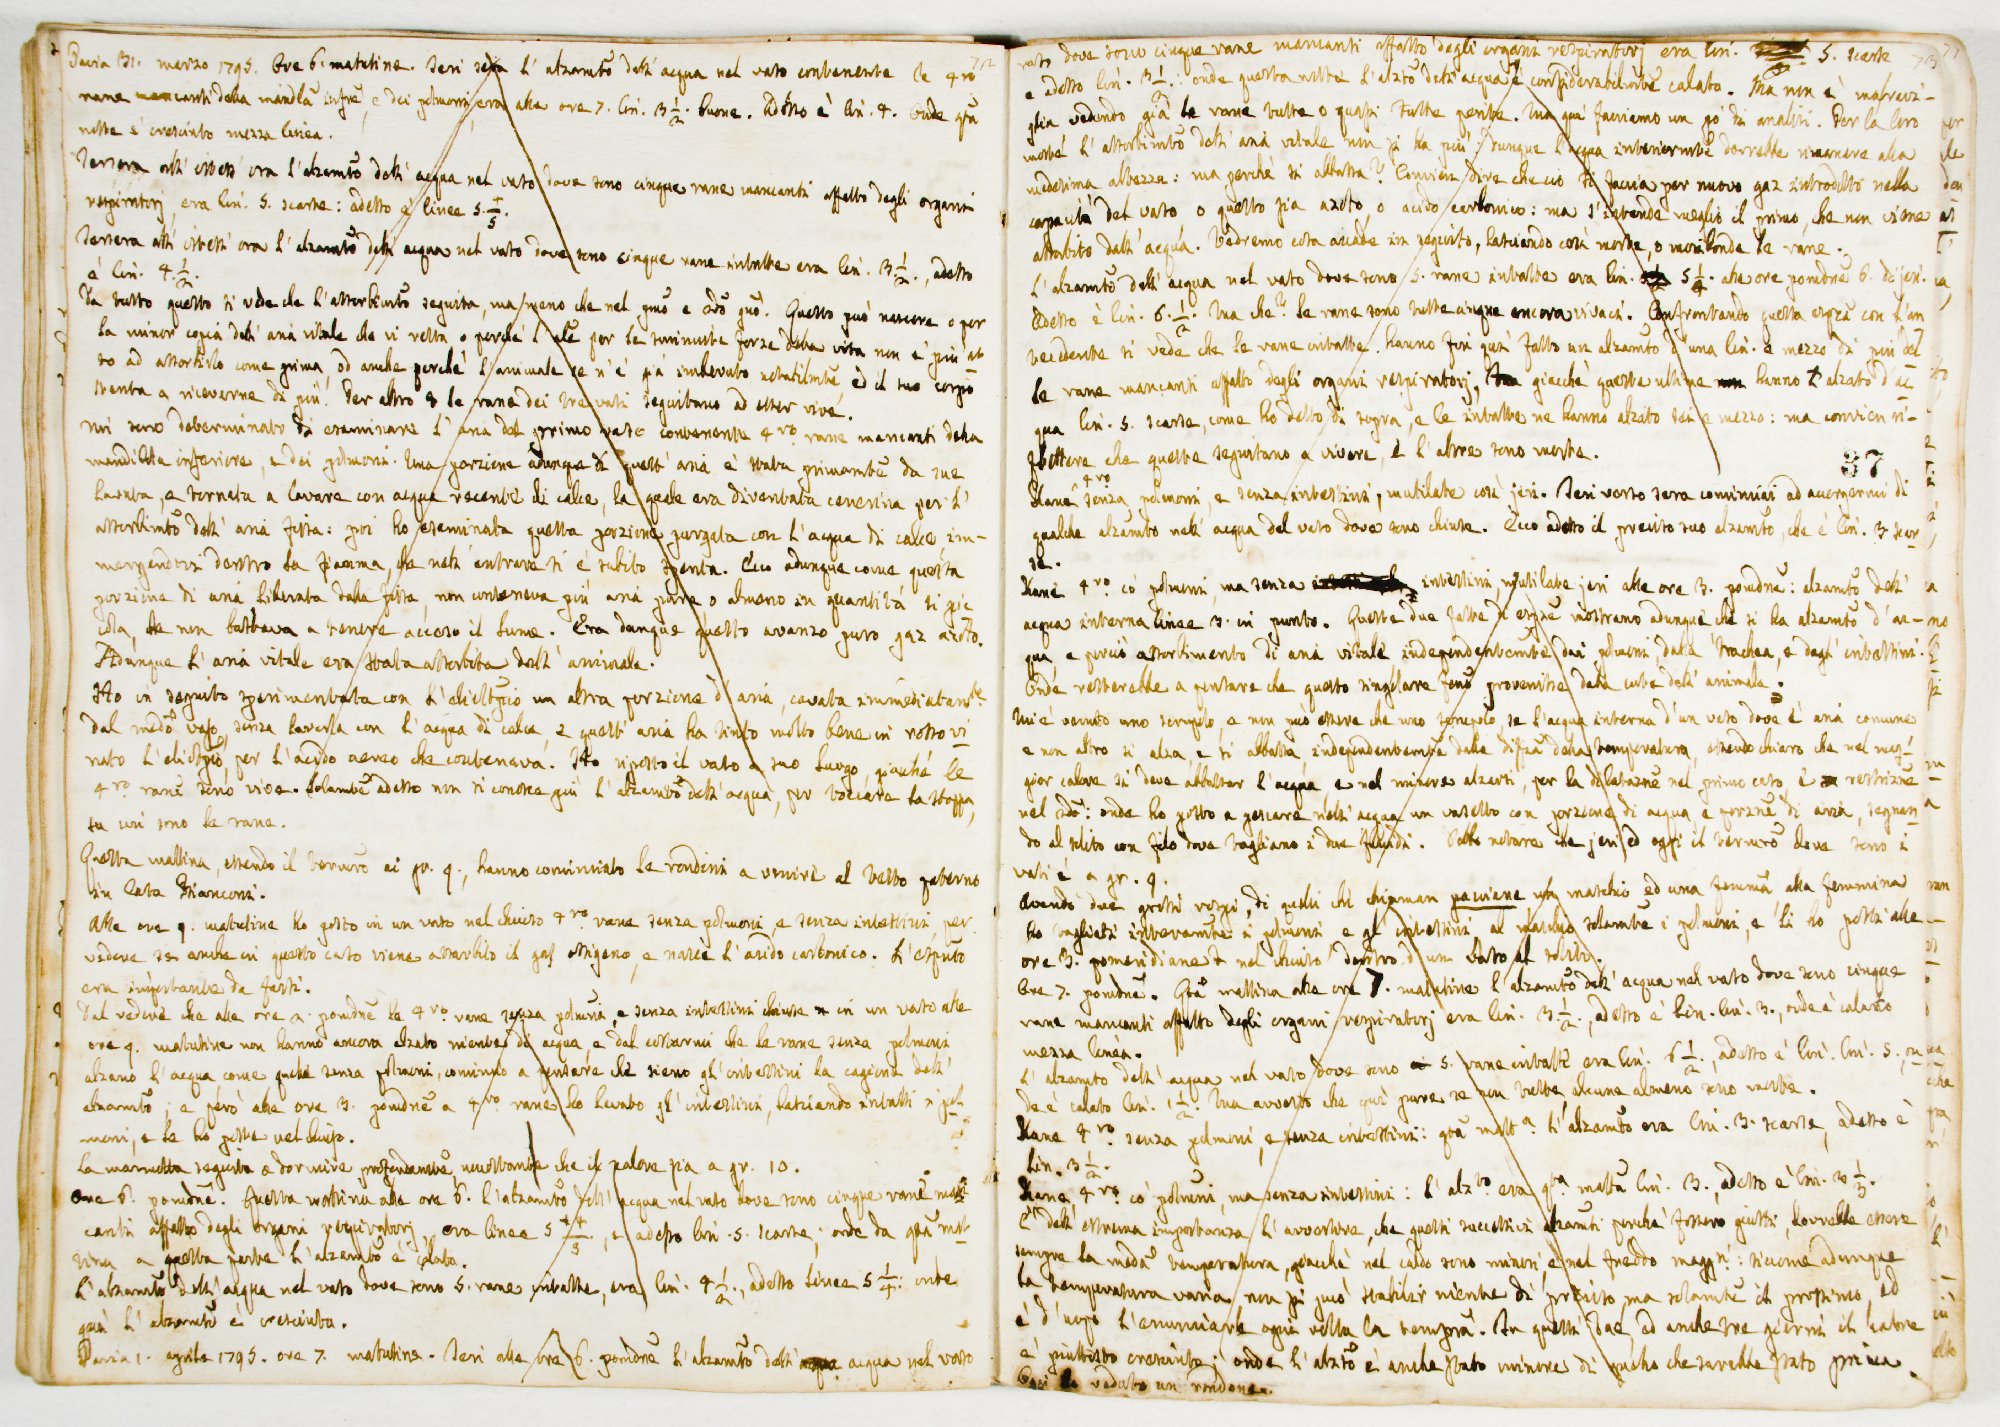 Pavia 31. marzo 1795. Ore 6. matutine. Ieri sera l'alzamto dell'acqua nel vaso contenente le 4ro 72
rane mancanti della mandla infre, e dei polmoni, era alle ore 7. lin. 3 1/2. buone. Adesso è lin. 4. Onde qta
notte è cresciuto mezza linea.
Iersera all'istess'ora l'alzamto dell'acqua nel vaso dove sono cinque rane mancanti affatto degli organi
respiratorj, era lin. 5. scarse: adesso è linee 5. 1/5.
Iersera all'istess'ora l'alzamto dell'acqua nel vaso dove sono cinque rane intatte era lin. 3 1/2., adesso
è lin. 4 1/2.
Da tutto questo si vede che l'assorbimto seguita, ma meno che nel pmo e 2do gno. Questo può nascere o per
la minor copia dell'aria vitale che vi resta o perchè l'ale per le sminuite forze della vita non è più at
to ad assorbirlo come prima, od anche perchè l'animale se n'è già imbevuto notabilmte ed il suo corpo
stenta a riceverne di più. Per altro le rane dei tre vasi seguitano ad esser vive.
mi sono determinato di esaminare l'aria del primo vaso contenente 4ro rane mancanti della
mandibola inferiore, e dei polmoni. Una porzione adunque di quest'aria è stata primamte da me
lavata, e tornata a lavare con acqua recente di calce, la quale era diventata cenerina per l'
assorbimto dell'aria fissa: poi ho esaminata questa porzione purgata con l'acqua di calce im-
mergendovi dentro la fiamma, che nell'entrare si è subito spenta. Ecco adunque come questa
porzione di aria liberata dalla fissa, non conteneva più aria pura o almeno in quantità sì pic
cola, che non bastava a tenere acceso il lume. Era dunque questo avanzo puro gaz azoto.
Adunque l'aria vitale era stata assorbita dall'animale.
Ho in seguito sperimentata con l' un altra porzione d'aria, cavata immediatamte
dal medmo vaso, senza lavarla con l'acqua di calce, e quest'aria ha tinto molto bene in rosso vi
nato l', per l'acido aereo che conteneva. Ho riposto il vaso a suo luogo, giacchè le
4ro rane sono vive. Solamte adesso non si conosce più l'alzamto dell'acqua, per toccare la stoppa,
su cui sono le rane.
Questa mattina, essendo il termro ai gr. 9., hanno cominciato le rondini a venire al tetto paterno
in Casa Bianconi.
Alle ore 9. matutine ho posto in un vaso nel chiuso 4ro rane senza polmoni e senza intestini per
vedere se anche in questo caso viene assorbito il gas ossigeno, e nasce l'acido carbonico. L'espto
era importante da farsi.
Dal vedere che alle ore 2. pomdne le 4ro rane senza polmoni, e senza intestini chiuse in un vaso alle
ore 9. matutine non hanno ancora alzato niente di acqua, e dal costarmi che le rane senza polmoni
alzano l'acqua come quelle senza polmoni, comincio a pensare che sieno gl'intestini la cagione dell'
alzamto; e però alle ore 3. pomdne a 4ro rane ho levato gl'intestini, lasciando intatti i pol-
moni, e le ho poste nel chiuso.
La marmotta seguita a dormire profondamte, nonostante che il calore sia a gr. 10.
Ore 6. pomdne. Questa mattina alle ore 6. l'alzamto dell'acqua nel vaso dove sono cinque rane man
canti affatto degli organi respiratorj, era linee 5 1/5., e adesso lin. 5. scarse; onde da qta mat-
tina a questa parte l'alzamto è calato.
L'alzamto dell'acqua nel vaso dove sono 5. rane intatte, era lin. 4 1/2., adesso linee 5 1/4: onde
qui l'alzamto è cresciuto.
Pavia 1. aprile 1795. ore 7. matutine. Ieri alle ore 6. pomdne l'alzamto dell' acqua nel vaso
vaso dove sono cinque rane mancanti affatto degli organi respiratorj era lin. 5. scarse 73
e adesso lin. 3 1/2: onde questa notte l'alzto dell'acqua è considerabilmte calato. Ma non è maravi-
glia vedendo già le rane tutte o quasi tutte perite. Ma qui facciamo un pò di analisi. Per la loro
morte l'assorbimto dell'aria vitale non si ha più. Dunque l'acqua internamte dovrebbe rimanere alla
medesima altezza: ma perchè si abbassa? Convien dire che ciò si faccia per nuovo gaz introdotto nella
capacità del vaso o questo sia azoto, o acido carbonico: ma s'intende meglio il primo, che non viene
assorbito dall'acqua. Vedremo cosa accade in seguito, lasciando così morte, o moribonde le rane.
L'alzamto dell'acqua nel vaso dove sono 5. rane intatte era lin. 5 1/4. alle ore pomdne 6. di jeri.
Adesso è lin. 6. 1/2. Ma che? Le rane sono tutte cinque ancora vivaci. Confrontando questa espza con l'an
tecedente si vede che le rane intatte hanno fin qui fatto un alzamto d'una lin. e mezzo di più del
le rane mancanti affatto degli organi respiratorj, giacchè queste ultime hanno alzato d'ac
qua lin. 5. scarse, come ho detto di sopra, e le intatte ne hanno alzato sei e mezzo: ma convien ri-
flettere che queste seguitano a vivere, e l'altre sono morte.
37
Rane 4ro senza polmoni, e senza intestini, mutilate così jeri. Ieri verso sera cominciai ad accorgermi di
qualche alzamto nell'acqua del vaso dove sono chiuse. Ecco adesso il preciso suo alzamto, che è lin. 3 scar
se.
Rane 4ro co' polmoni, ma senza intestini, mutilate jeri alle ore 3. pomdne: alzamto dell'
acqua interna linee 3. in punto. Queste due fatte espze mostrano adunque che si ha alzamto d'ac-
qua, e perciò assorbimento di aria vitale independentemte dai polmoni, dalla trachea, e dagl'intestini.
Onde resterebbe a pensare che questo singolare fenno provenisse dalla cute dell'animale.
Mi è venuto uno scrupolo, e non può essere che uno scrupolo, se l'acqua interna d'un vaso dove è aria comune
e non altro si alza, e si abbassa independentemte dalla difza della temperatura, essendo chiaro che nel mag-
gior calore si deve abbassar l'acqua e nel minore alzarsi, per la dilatazne nel primo caso, e restrizne
nel 2do: onde ho posto a pescare nell'acqua un vasetto con porzione di acqua e porzne di aria, segnan
do al solito con filo dove tagliano i due fluidi. Debbo notare che jeri, ed oggi il termro dove sono i
vasi è a gr. 9.
Avendo due grossi rospi, di quelli chi chiaman paviene un maschio ed una femmina alla femmina
ho tagliati interamte i polmoni e gl'intestini, al maschio solamte i polmoni, e li ho posti alle
ore 3. pomeridiane nel chiuso dentro d'un vaso al solito.
Ore 7. pomdne. Qta mattina alle ore 7. matutine l'alzamto dell'acqua nel vaso dove sono cinque
rane mancanti affatto degli organi respiratorj era lin. 3 1/2., adesso è lin. 3., onde è calato
mezza linea.
L'alzamto dell'acqua nel vaso dove sono 5. rane intatte era lin. 6 1/2., adesso è lin. 5., on
de è calato lin. 1 1/2. Ma avverto che qui pure se non tutte alcune almeno sono morte.
Rane 4ro senza polmoni, e senza intestini: qta matta l'alzamto era lin. 3. scarse, adesso è
lin. 3 1/2.
Rane 4ro co' polmoni, ma senza intestini: l'alzto era qta matta lin. 3., adesso è lin. 3 1/3.
È dell'estrema importanza l'avvertire, che questi successivi alzamti perchè fossero giusti, dovrebbe essere
sempre la medma temperatura, giacchè nel caldo sono minori e nel freddo maggri: siccome adunque
la temperatura varia non si può stabilir niente di preciso, ma solamte il prossimo, ed
è d'uopo l'enunciare ogni volta la tempra. In questi due, ed anche tre giorni il calore
è piuttosto cresciuto; onde l'alzto è anche stato minore di quello che sarebbe stato prima.
Oggi ho veduto un rondone.